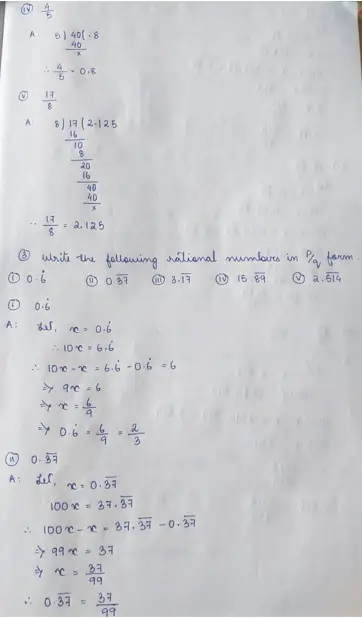 (iv) 4/5
A: 5) 40( .8
40
x
∴ 4/5 = 0.8
(v) 17/8
A 8) 17 (2.125
16
10
8
20
16
40
40
x
∴ 17/8 = 2.125
(3) Write the following rational numbers in P/q form.
(i) 0.6̇ (ii) 0.3̅7̅ (iii) 3.1̅7̅ (iv) 15.8̅9̅ (v) 2.5̅1̅4̅
(i) 0.6̇
A: Let, x = 0.6̇
∴ 10x = 6.6̇
∴ 10x - x = 6.6̇ - 0.6̇ = 6
⇒ 9x = 6
⇒ x = 6/9
⇒ 0.6̇ = 6/9 = 2/3
(ii) 0.3̅7̅
A: Let, x = 0.3̅7̅
100x = 37.3̅7̅
∴ 100x - x = 37.3̅7̅ - 0.3̅7̅
⇒ 99x = 37
⇒ x = 37/99
∴ 0.3̅7̅ = 37/99